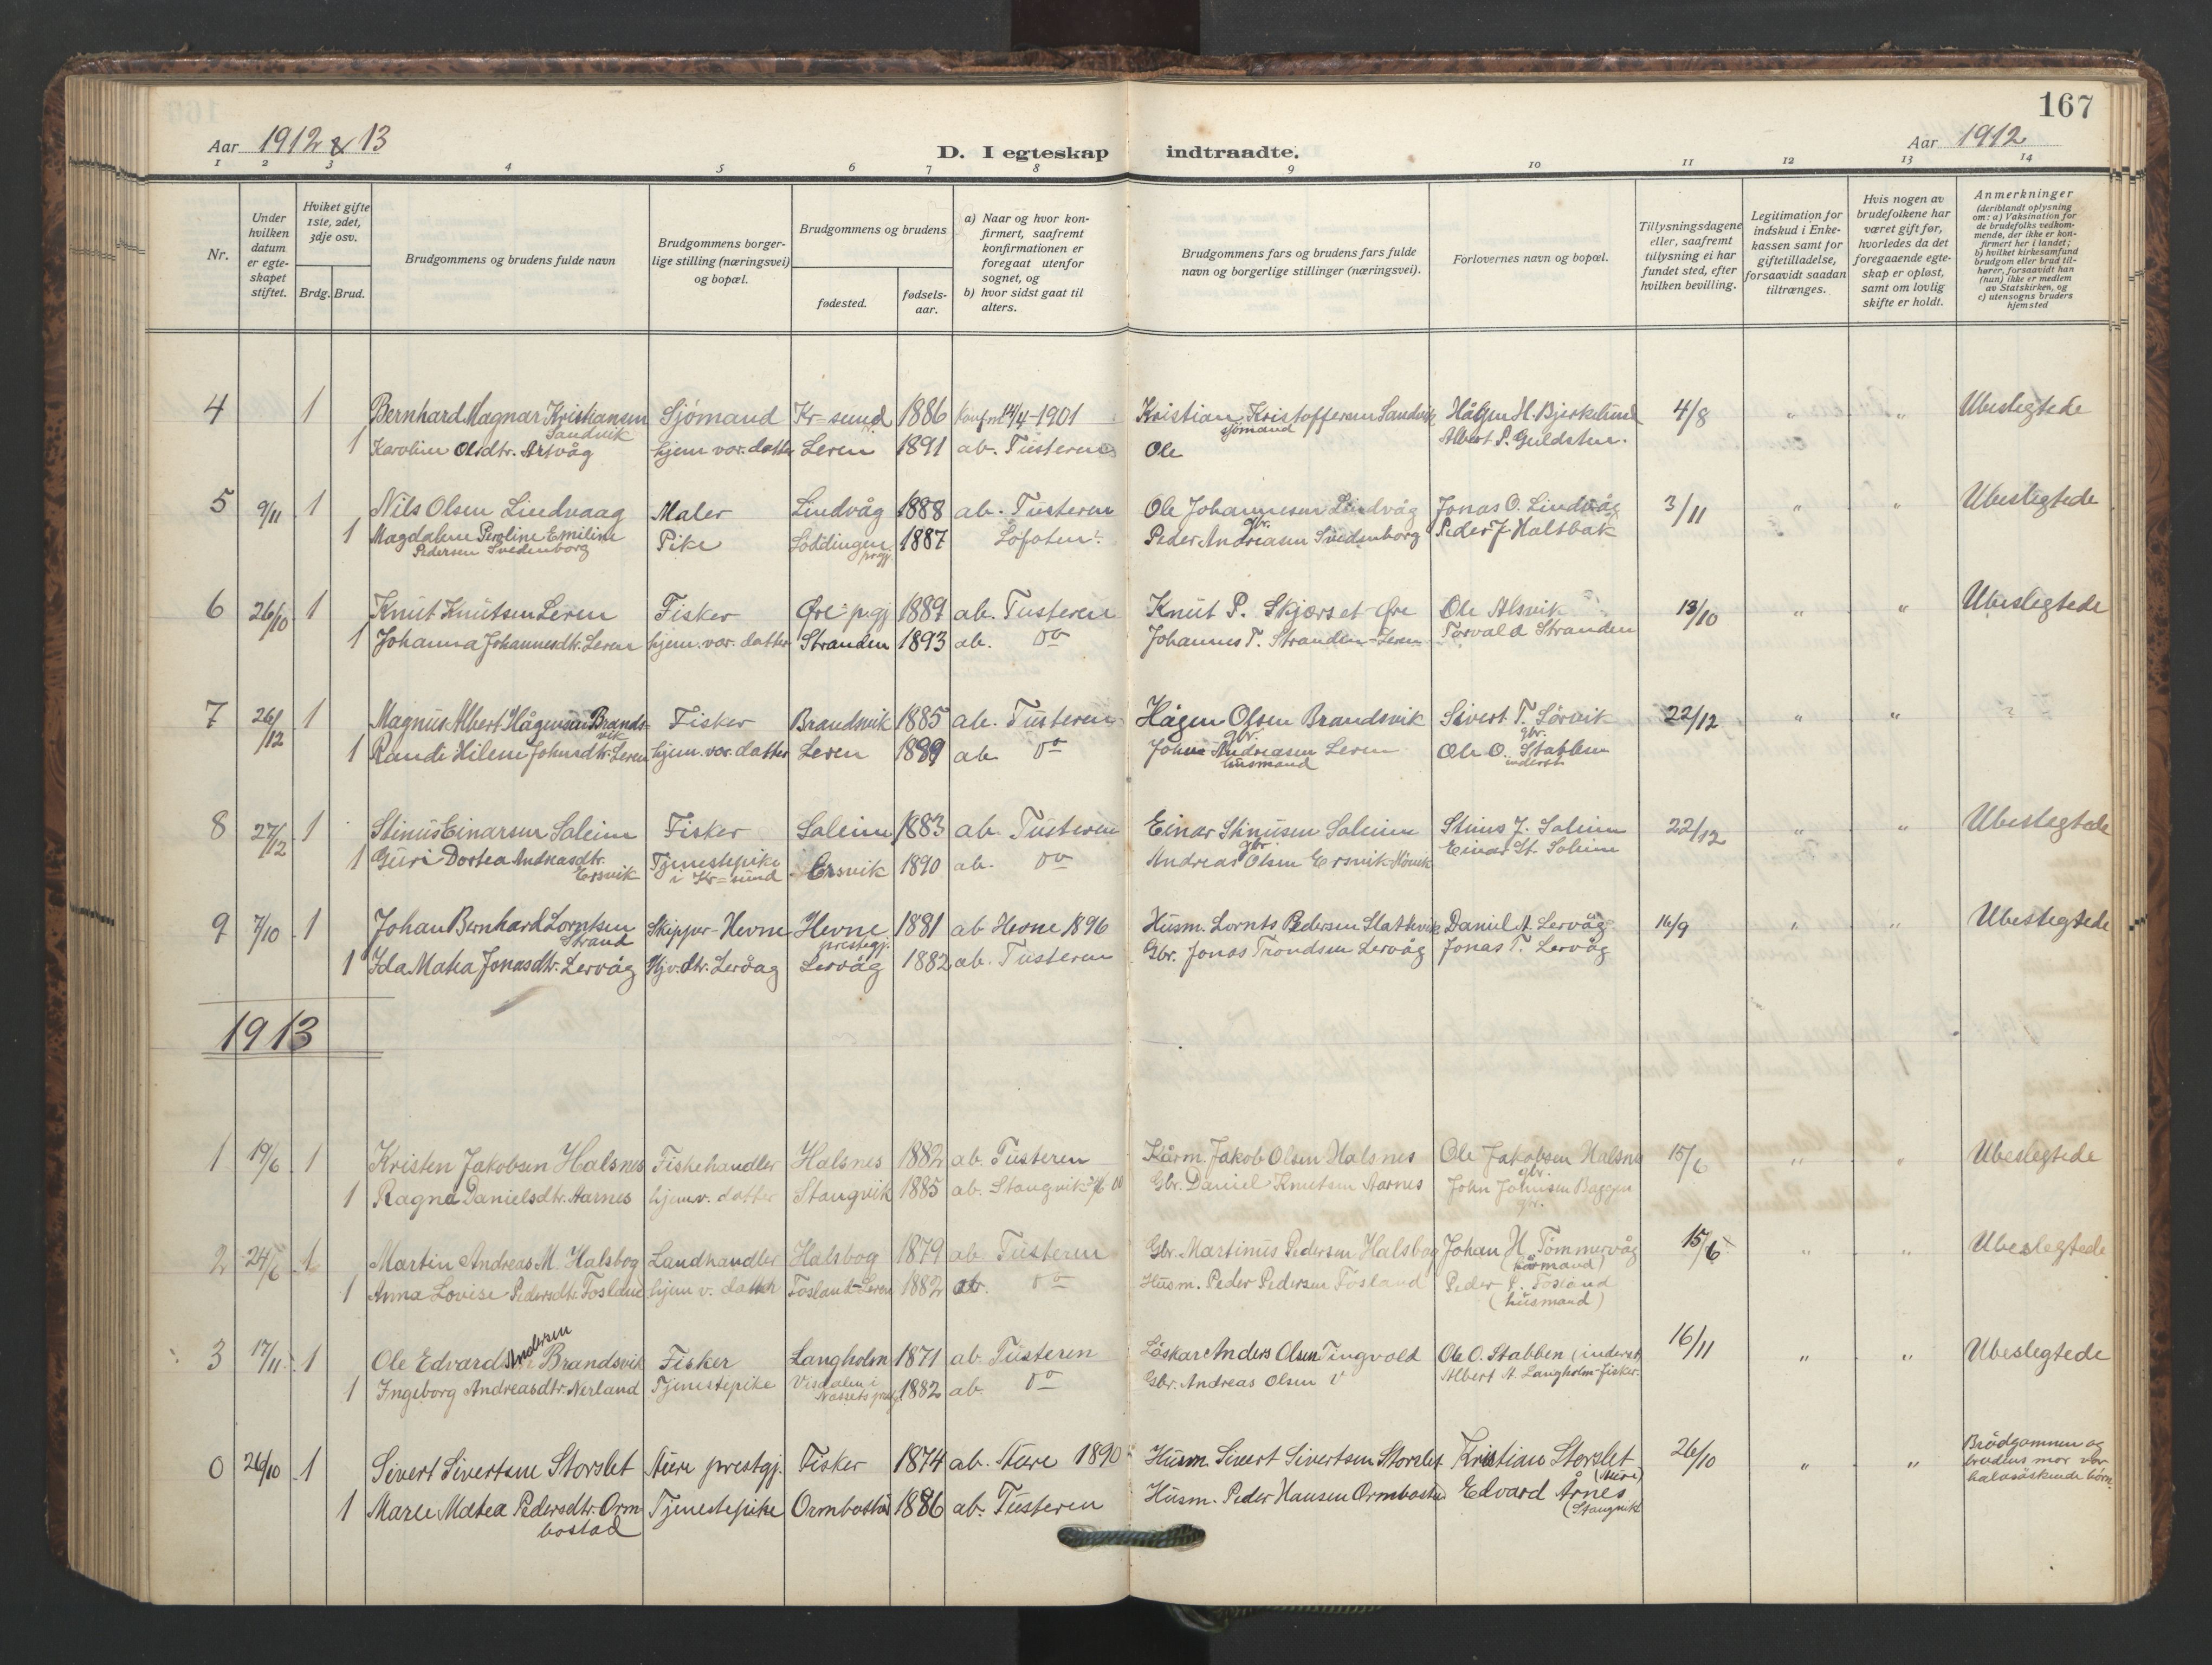 167
Aar 1912 & 13
D. I egteskap indtraadte.
Aar 1912
1 2 3 4 5 6 7 8 9 10 11 12 13 14
Nr.
Under hvilken datum er egteskapet stiftet.
Hviket gifte 1ste, 2det, 3dje osv.
Brdg. Brud.
Brudgommens og brudens fulde navn
Brudgommens borgerlige stilling (næringsvei) og bopæl.
Brudgommens og brudens
fødested.
fødselsaar.
a) Naar og hvor konfirmert, saafremt konfirmationen er foregaat utenfor sognet, og
b) hvor sidst gaat til alters.
Brudgommens fars og brudens fars fulde navn og borgerlige stillinger (næringsvei).
Forlovernes navn og bopæl.
Tillysningsdagene eller, saafremt tillysning ei har fundet sted, efter hvilken bevilling.
Legitimation for indskud i Enkekassen samt for giftetilladelse, forsaavidt saadan tiltrænges.
Hvis nogen av brudefolkene har været gift før, hvorledes da det foregaaende egteskap er opløst, samt om lovlig skifte er holdt.
Anmerkninger (deriblandt oplysning om: a) Vaksination for de brudefolks vedkommende, der ikke er konfirmert her i landet; b) hvilket kirkesamfund brudgom eller brud tilhører, forsaavidt han (hun) ikke er medlem av Statskirken, og c) utensogns bruders hjemsted
4 1 Bernhard Magnar Kristiansen Sandvik Sjömand Kr-sund 1886 Konfm 14/4-1901 Kristian Kristoffersen Sandvik sjömand Hågen H. Bjerkelund 4/8 " " Ubeslegtede
1 Karoline Olsdtr. Artvåg hjem. vær. datter Leren 1891 ab. Tusteren Ole Albert P. Guldstun.
5 9/11 1 Nils Olsen Lindvaag Maler Lindvåg 1888 ab. Tusteren Ole Johannesen Lindvåg gbr. Jonas O. Lindvåg 3/11 " " Ubeslegtede
1 Magdalene Peroline Emiline Pedersen Svedenborg Pike Loddingen pregj. 1887 Lofoten Peder Andreasen Svedenborg Peder J. Haltbak
6 26/10 1 Knut Knutsen Leren Fisker Øre pgj 1889 ab. Tusteren Knut P. Skjærset Øre Ole Alsvik 13/10 " " Ubeslegtede
1 Johanna Johannesdtr. Leren hjem. vær. datter Stranden 1893 ab. do Johannes T. Stranden-Leren Torvald Stranden
7 26/12 1 Magnus Albert Hågensen Brandsvik Fisker Brandsvik 1885 ab. Tusteren Hågen Olsen Brandsvik gbr. Sivert T. Sörvik gbr. 22/12 " "
1 Randi Hilene Johnsdtr. Leren hjem. vær. datter Leren 1889 ab do John Andreasen Leren husmand Ole O. Stabben inderst
8 27/12 1 Stinus Einarsen Soleim Fisker Soleim 1883 ab. Tusteren Einar Stinusen Soleim gbr. Stinus J. Soleim 22/12 " " Ubeslegtede
1 Guri Dortea Andreasdtr. Ersvik Tjenestepike i Kr-sund Ersvik 1890 ab. do Andreas Olsen Ersvik Einar St. Soleim
9 7/10 1 Johan Bernhard Lorntsen Strand Skipper-Hevne Hevne prestegj. 1881 ab Hevne 1896 Husm. Lornts Pedersen Daniel A. Lervåg 16/9 " " Ubeslegtede
1 Ida Matea Jonasdtr. Lervåg Hjv. dtr. Lervåg Lervåg 1882 ab. Tusteren Gbr. Jonas Trondsen Lervåg Jonas T. Lervåg
1913
1 19/6 1 Kristen Jakobsen Halsnes Fiskehandler Halsnes 1882 ab. Tusteren Kårm. Jakob Olsen Halsnes Ole Jakobsen Halsnes gbr. 15/6 " " Ubeslegtede
1 Ragna Danielsdtr. Aarnes hjem v. datter Stangvik 1885 ab. Stangvik Gbr. Daniel Knutsen Aarnes John Johnsen gbr.
2 24/6 1 Martin Andreas M. Halsbog Landhandler Halsbog 1879 ab Tusteren Gbr. Martinus Pedersen Halsbog Johan H. Tömmervåg (kårmand) 15/6 " " Ubeslegtede
1 Anna Lovise Pedersdtr. Fosland hjem v. datter Fosland-Leren 1882 ab. do Husm. Peder Pedersen Fosland Peder P. Fosland (husmand)
3 17/11 1 Ole Edvard Andersen Brandsvik Fisker Langholm 1871 ab. Tusteren Löskar Anders Olsen Tingvold Ole O. Stabben (inderst) 16/11 " " Ubeslegtede
1 Ingeborg Andreasdtr. Nerland Tjenestepike Visdalen i Nessets 1882 ab. do Gbr. Andreas Olsen Albert A. Langholm-fisker.
0 26/10 1 Sivert Sivertsen Storslet Aure prestgj. Fisker 1874 ab. Aure 1890 Husm. Sivert Sivertsen Storslet Kristian Storslet (Aure) 26/10 " " Brudgommen og brudens mor var halvsöskende börn
1 Maree Matea Pedersdtr. Ormbostad Tjenestepike Ormbostad 1886 ab. Tusteren Husm. Peder Hansen Ormbostad Edvard Årnes (Stangvik)